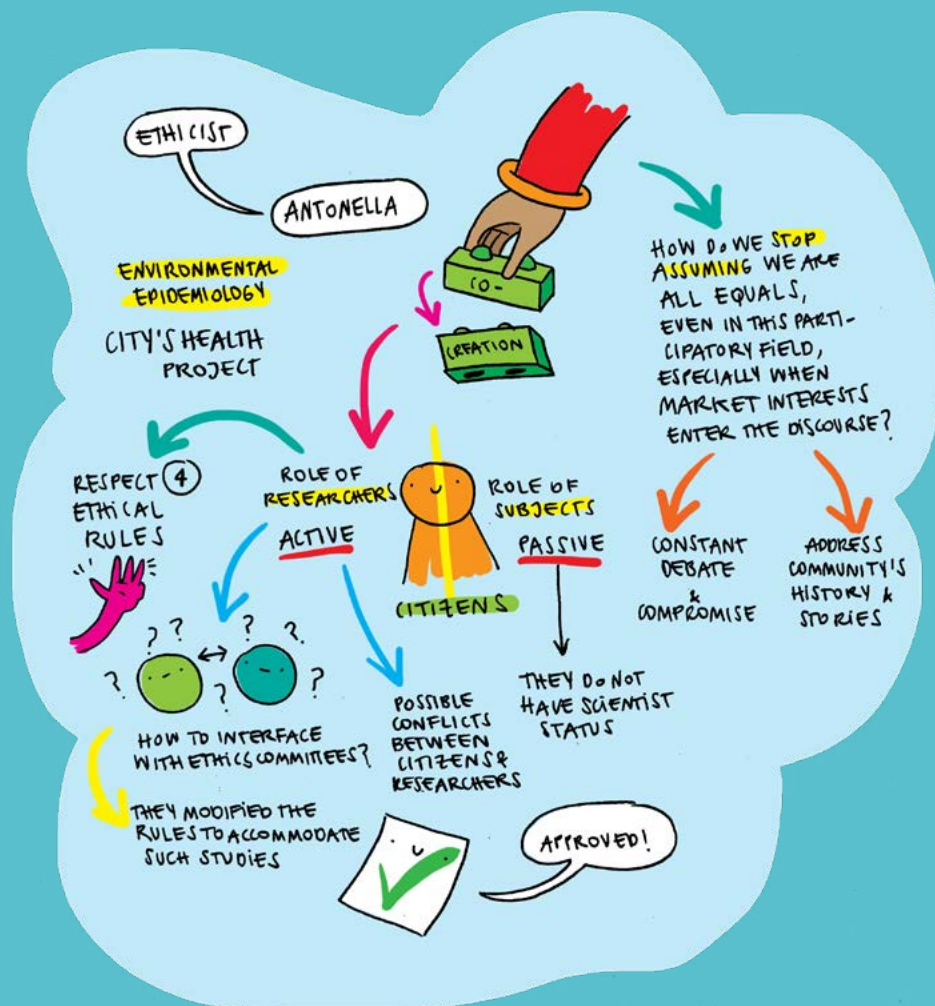 ETHICIST
ANTONELLA
ENVIRONMENTAL
EPIDEMIOLOGY
CITY'S HEALTH
PROJECT
CO-
CREATION
HOW DO WE STOP
ASSUMING WE ARE
ALL EQUALS,
EVEN IN THIS PARTI-
CIPATORY FIELD,
ESPECIALLY WHEN
MARKET INTERESTS
ENTER THE DISCOURSE?
CONSTANT
DEBATE
&
COMPROMISE
ADDRESS
COMMUNITY'S
HISTORY &
STORIES
RESPECT 4
ETHICAL
RULES
ROLE OF
RESEARCHERS
ACTIVE
ROLE OF
SUBJECTS
PASSIVE
CITIZENS
? ? ? ? ? ? ?
HOW TO INTERFACE
WITH ETHICS COMMITTEES?
THEY MODIFIED THE
RULES TO ACCOMMODATE
SUCH STUDIES
POSSIBLE
CONFLICTS
BETWEEN
CITIZENS &
RESEARCHERS
THEY DO NOT
HAVE SCIENTIST
STATUS
APPROVED!